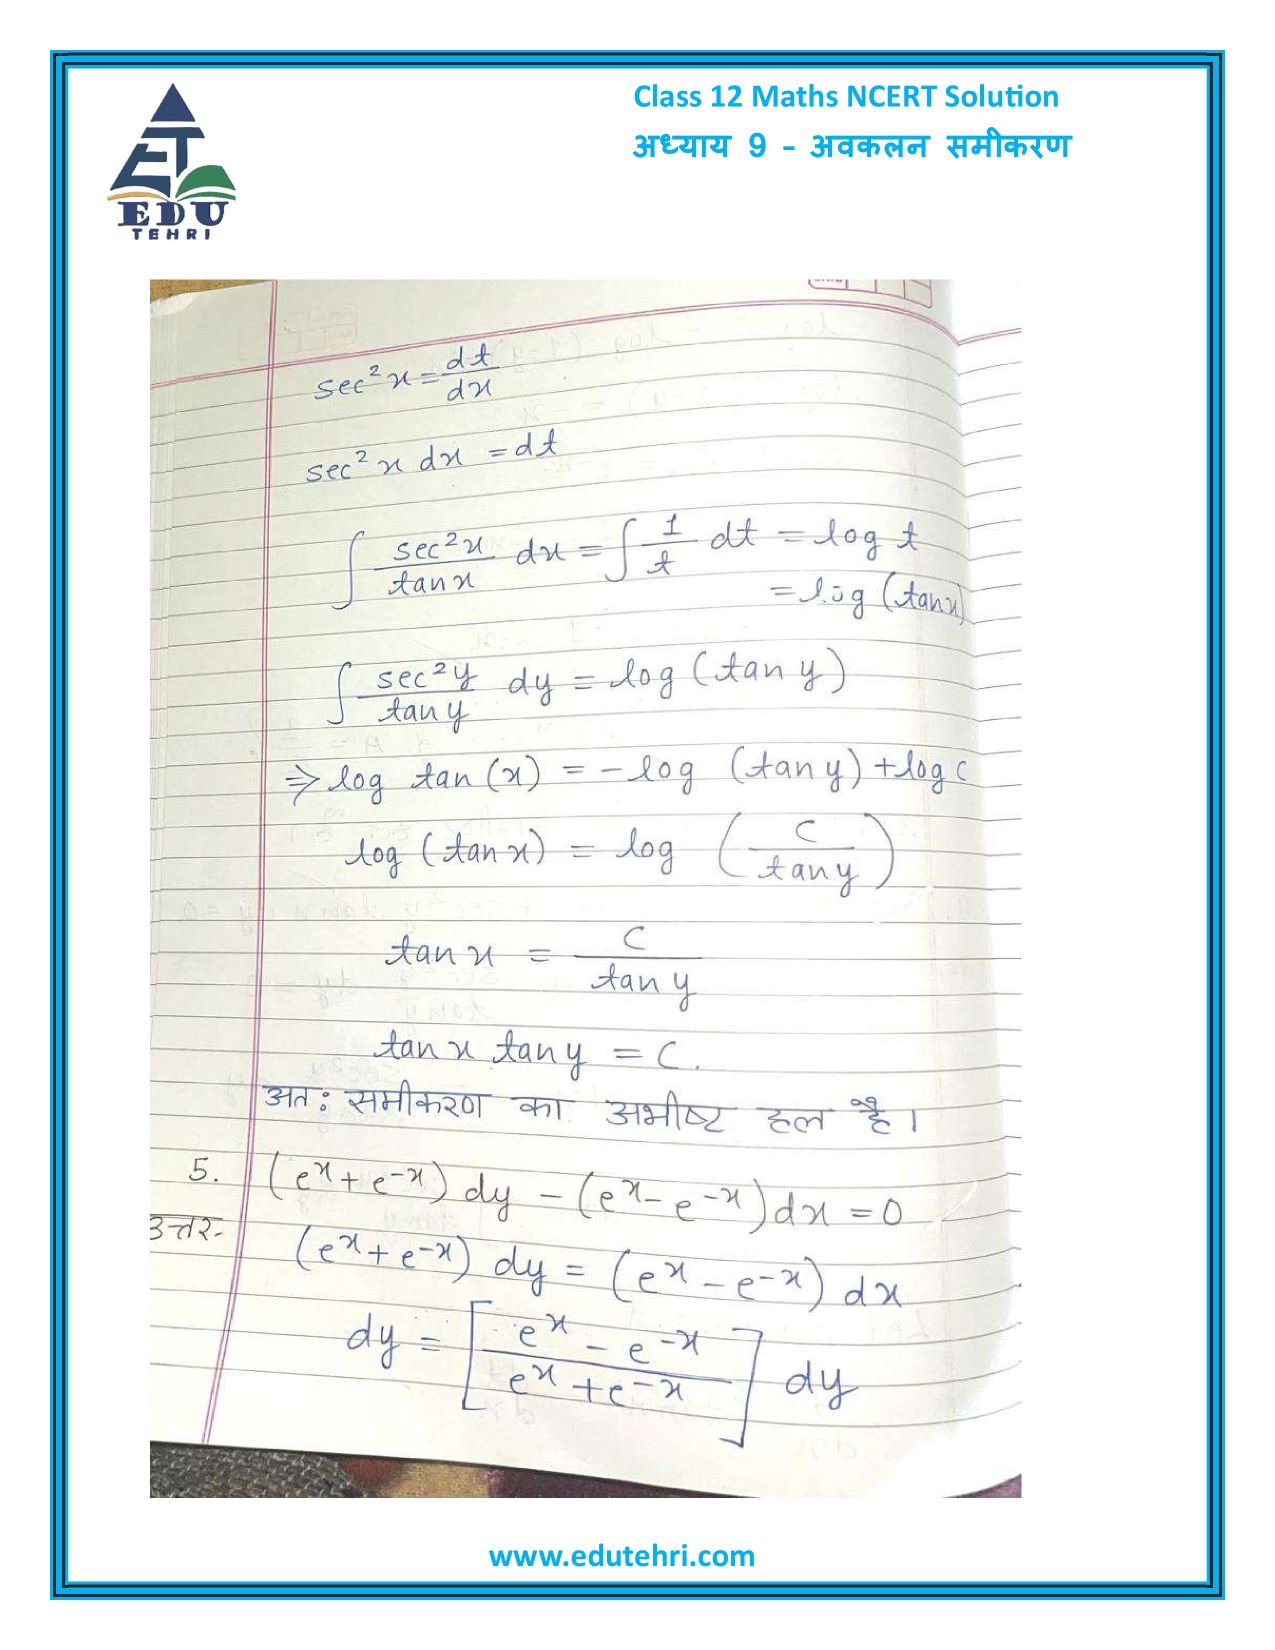 Class 12 Maths NCERT Solution
अध्याय 9 - अवकलन समीकरण
EDU
TEHRI
sec²x = dt/dx
sec²x dx = dt
∫ sec²x/tanx dx = ∫ 1/t dt = log t
= log (tanx)
∫ sec²y/tany dy = log (tan y)
⇒ log tan(x) = -log (tany) + log c
log (tanx) = log (c/tany)
tanx = c/tany
tanx tany = c.
अतः समीकरण का अभीष्ट हल है।
5. (eˣ + e⁻ˣ) dy - (eˣ - e⁻ˣ) dx = 0
उत्तर- (eˣ + e⁻ˣ) dy = (eˣ - e⁻ˣ) dx
dy = [eˣ - e⁻ˣ / eˣ + e⁻ˣ] dy
www.edutehri.com